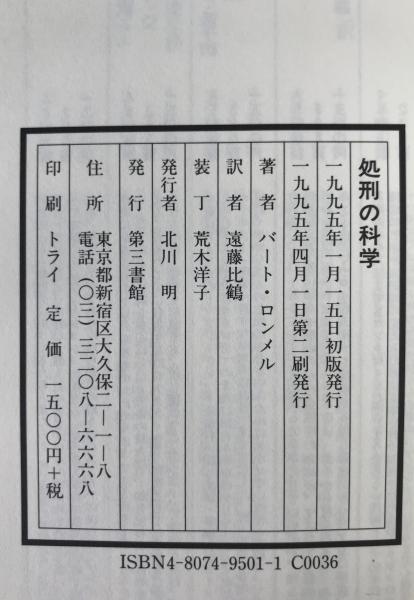 処刑の科学
一九九五年一月一五日初版発行
一九九五年四月一日第二刷発行
著者 バート・ロンメル
訳者 遠藤比鶴
装丁 荒木洋子
発行者 北川 明
発行 第三書館
住所 東京都新宿区大久保二―一―八
電話（〇三）三二〇八―六六六八
印刷 トライ 定価 一五〇〇円＋税
ISBN4-8074-9501-1 C0036